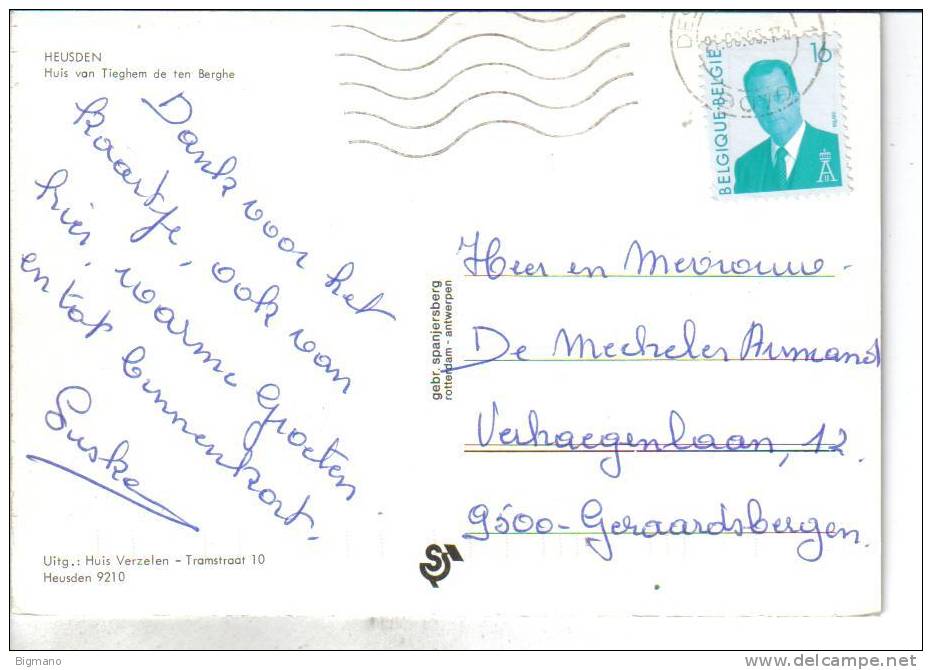 HEUSDEN
Huis van Tieghem de ten Berghe
Dank voor het
kaartje, ook van
hier, warme groeten
en tot binnenkort.
Suske
Uitg.: Huis Verzelen - Tramstraat 10
Heusden 9210
gebr. spanjersberg
rotterdam - antwerpen
BELGIQUE-BELGIE
16
Heer en Mevrouw
De Mecheler Armand
Verhaegenlaan, 12
9500-Geraardsbergen.
Bigmano
www.delcampe.net